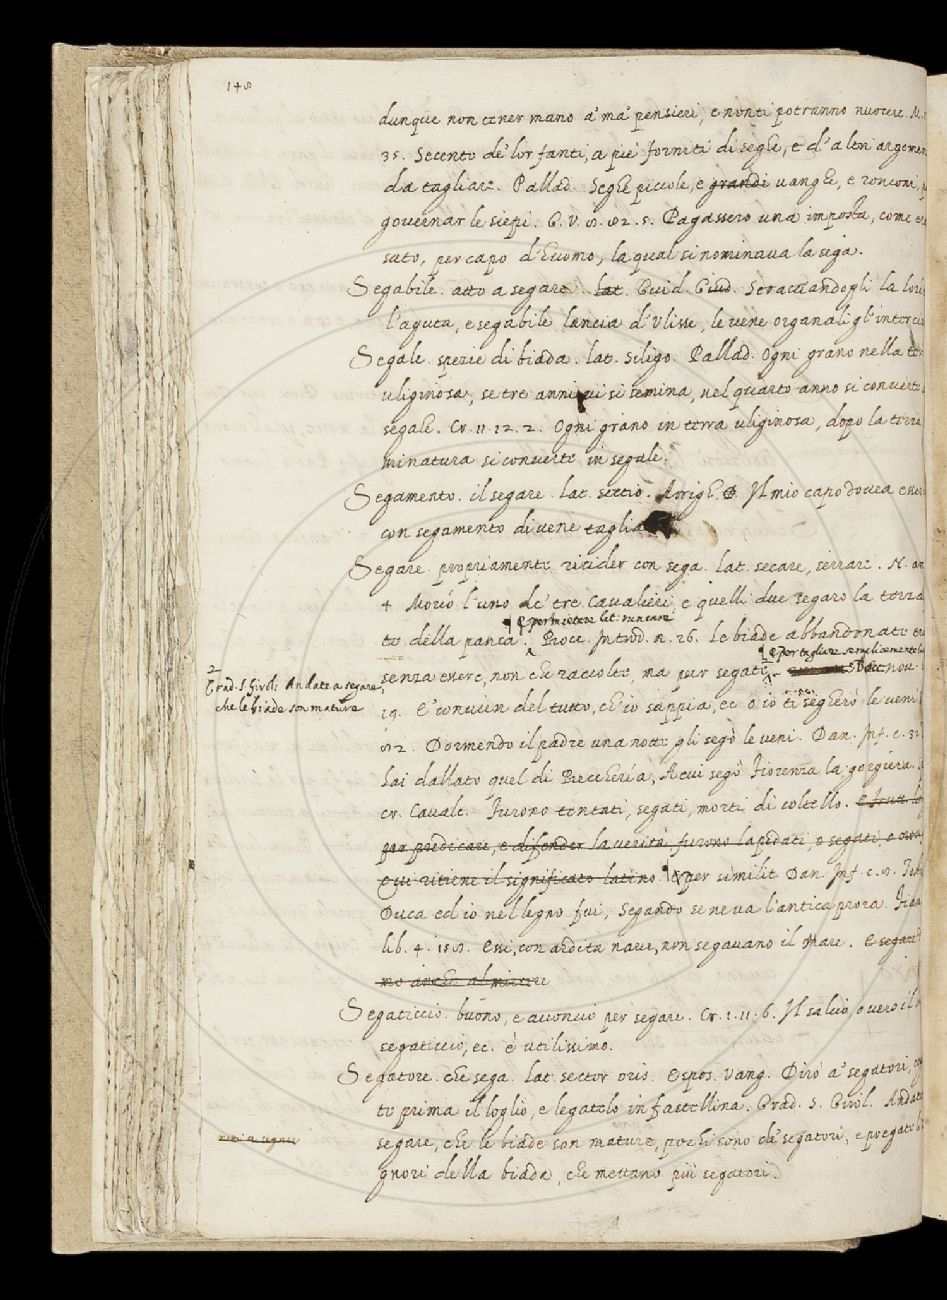 148
dunque non tener mano a' ma' pensieri, e non ti potranno nuocere. M.
35. Secento de' lor fanti, a piè forniti di seghe, e d'altri argomen
da tagliare. Pallad. Seghe piccole, e grandi vanghe, e ronconi,
governar le siepi. G. V. 8. 82. 5. Pagassero una imposta, come
sato, per capo d'huomo, la qual si nominava la sega.
Segabile. atto a segare. lat. Guid. Giud. Stracciandogli la
l'aguta, e segabile lancia d'Ulisse, le vene organali gl'
Segale. spezie di biada. lat. siligo. Pallad. Ogni grano nella
uliginosa, se tre anni vi si semina, nel quarto anno si converte
segale. Cr. 11. 12. 2. Ogni grano in terra uliginosa, dopo la terza
minatura si converte in segale.
Segamento. il segare. lat. sectio. Arrigh. Il mio capo dovea
con segamento di vene
Segare. propriamente ricider con sega. lat. secare, serrare. N. an
4 Morió l'uno de' tre Cavalieri, e quelli due segaro la terza
E per mietere lat. runcare
to della panca. Bocc. Introd. n. 26. Le biade abbandonate
E per tagliare semplicemente
senza essere, non che raccolte, ma pur segate. Bocc. nov.
2
Grad. S. Girol. Andate a segare,
che le biade son mature
19. E' convien del tutto, ch'io sappia, ec. o io ti segherò le veni
82. Dormendo il padre una notte gli segò le veni. Dan. Inf. c. 32
hai dallato quel di Beccheria, A cui segò Fiorenza la gorgiera.
cr. Cavalc. Furono tentati, segati, morti di coltello.
per predicare, e difender la verità, furono lapidati, e segati, e
Qui ritiene il significato latino. E per similit. Dan. Inf. c. 8.
Duca ed io nel legno fui, Segando se ne va l'antica prora.
lib. 4. 150. Essi, con ardita nave, non segavano il Mare. E
mo anche al mietere
Segaticcio. buono, e acconcio per segare. Cr. 1. 11. 6. Il salcio, o vero il
segaticcio, ec. è utilissimo.
Segatore. che sega. lat. sector oris. Espos. Vang. Dirò a' segatori,
te prima il loglio, e legatelo in fastellina. Grad. S. Girol. Andate
segare, che le biade son mature, pochi sono de' segatori, e pregate
gnori della biada, che mettano più segatori.